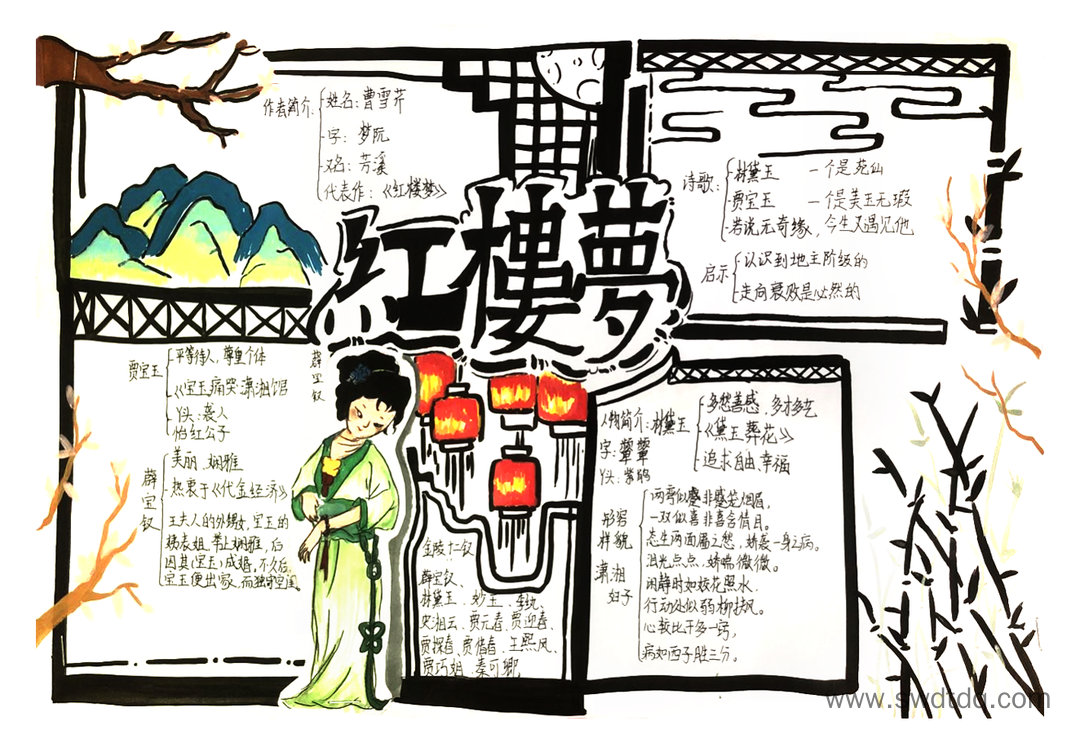 作者简介
姓名：曹雪芹
字：梦阮
号：芳溪
代表作：《红楼梦》
红樓夢
诗歌：
林黛玉 一个是苑仙
贾宝玉 一个是美玉无瑕
若说无奇缘，今生又遇见他
启示
认识到地主阶级的
走向衰败是必然的
贾宝玉
平等待人，尊重个体
《宝玉痛哭潇湘馆》
丫头：袭人
怡红公子
薛宝钗
薛宝钗
美丽、娴雅
热衷于《代金经济》
王夫人的外甥女，宝玉的
姨表姐，举止娴雅，后
因其(宝玉)成婚，不久后，
宝玉便出家，而独守空闺
金陵十二钗
薛宝钗、
林黛玉、妙玉、李纨、
史湘云、贾元春、贾迎春、
贾探春、贾惜春、王熙凤、
贾巧姐、秦可卿
人物简介：林黛玉
多愁善感，多才多艺
《黛玉葬花》
追求自由，幸福
字：颦颦
丫头：紫鹃
形容样貌
潇湘妃子
两弯似蹙非蹙笼烟眉，
一双似喜非喜含情目。
态生两面靥之愁，娇袭一身之病。
泪光点点，娇喘微微。
闲静时如姣花照水，
行动处似弱柳扶风。
心较比干多一窍，
病如西子胜三分。
www.swdtdq.com